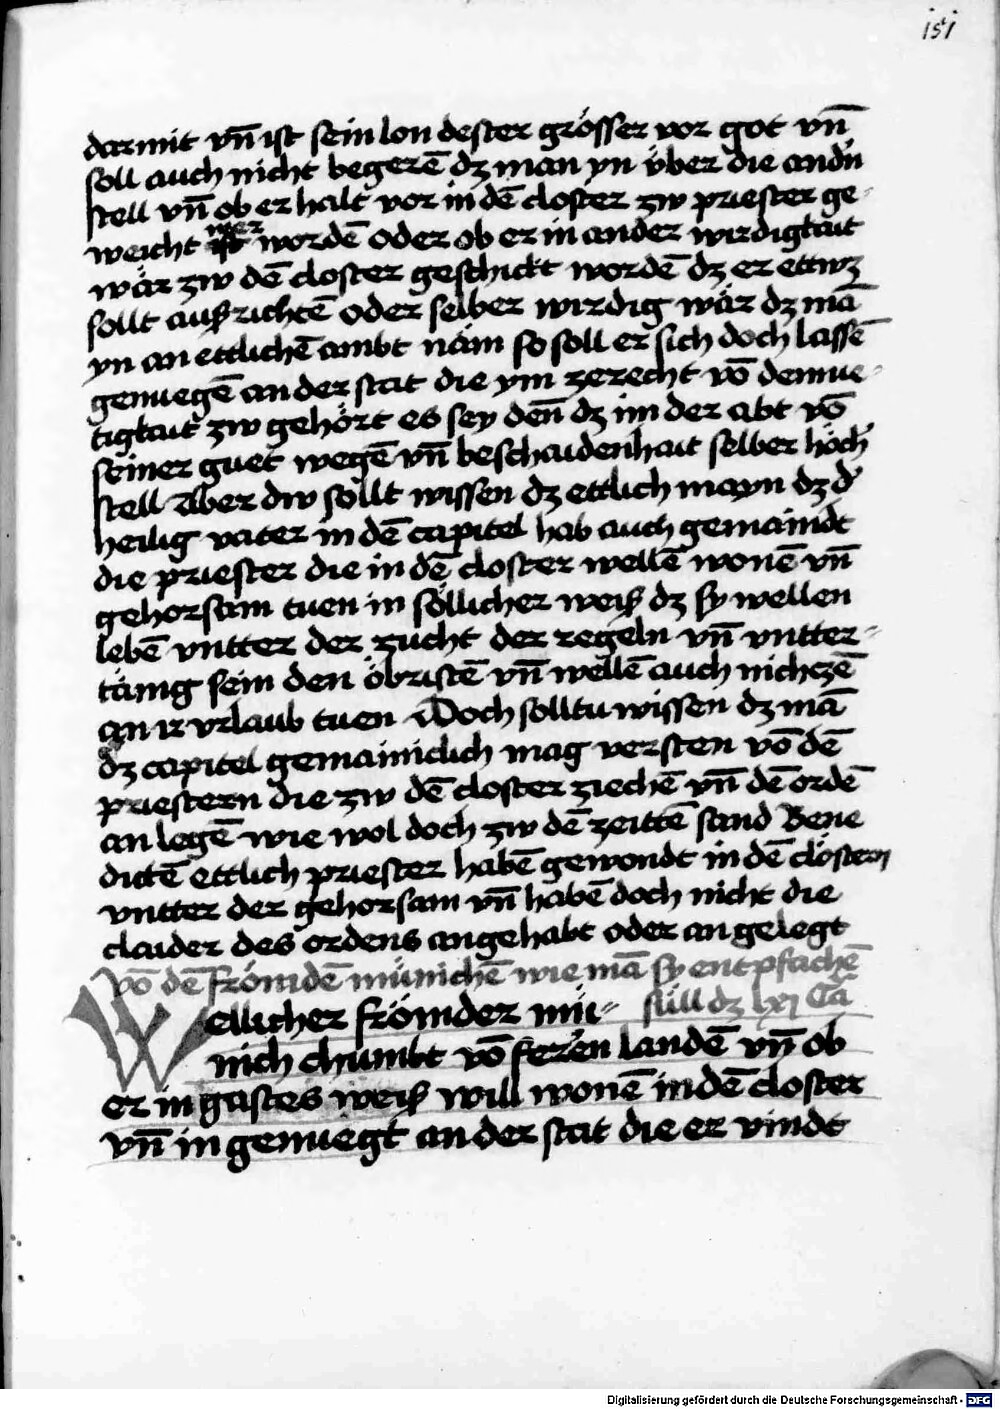 151
darmit vn̄ ist sein lon dester grösser vor got vn̄
soll auch nicht begerē dz man yn v̈ber die andn̄
stell vn̄ ob er halt vor in dē closter zw priester ge-
weicht wer wordē oder ob er in ander wirdigkait
wär zw dē closter geschickt wordē dz er ettwz
sollt auß richtē oder selber wirdig wär dz mā
yn an ettlichē ambt näm so soll er sich doch lassē
genuegē an der stat die ym zerecht vō demue-
tigkait zw gehört es sey den̄ dz im der abt vō
seiner guet wegē vn̄ beschaidenhait selber höch̄
stell Aber dw sollt wissen dz ettlich mayn dz d̄
heilig vater in dē capitel hab auch gemaindt
die priester die in dē closter wellē wonē vn̄
gehorsam tuen in söllicher weiß dz sy wellen
lebē vntter der zucht der regeln vn̄ vntter-
tänig sein den öbristē vn̄ wellē auch nichzē
an ir vrlaub tuen Doch solltu wissen dz mā
dz capitel gemainiclich mag versten vō dē
priestern die zw dē closter ziechē vn̄ dē ordē
an legē wie wol doch zw dē zeittē sand Bene
dictē ettlich priester habē gewondt in dē clöstern
vntter der gehorsam vn̄ habē doch nicht die
claider des ordens angehabt oder an gelegt
Vō dē frömdē münichē wie mā sy entpfachē
Wellicher frömder mü- süll dz lxi Ca
nich chumbt vō feren landē vn̄ ob
er in gastes weiß will wonē in dē closter
vn̄ in genuegt an der stat die er vindt
Digitalisierung gefördert durch die Deutsche Forschungsgemeinschaft - DFG